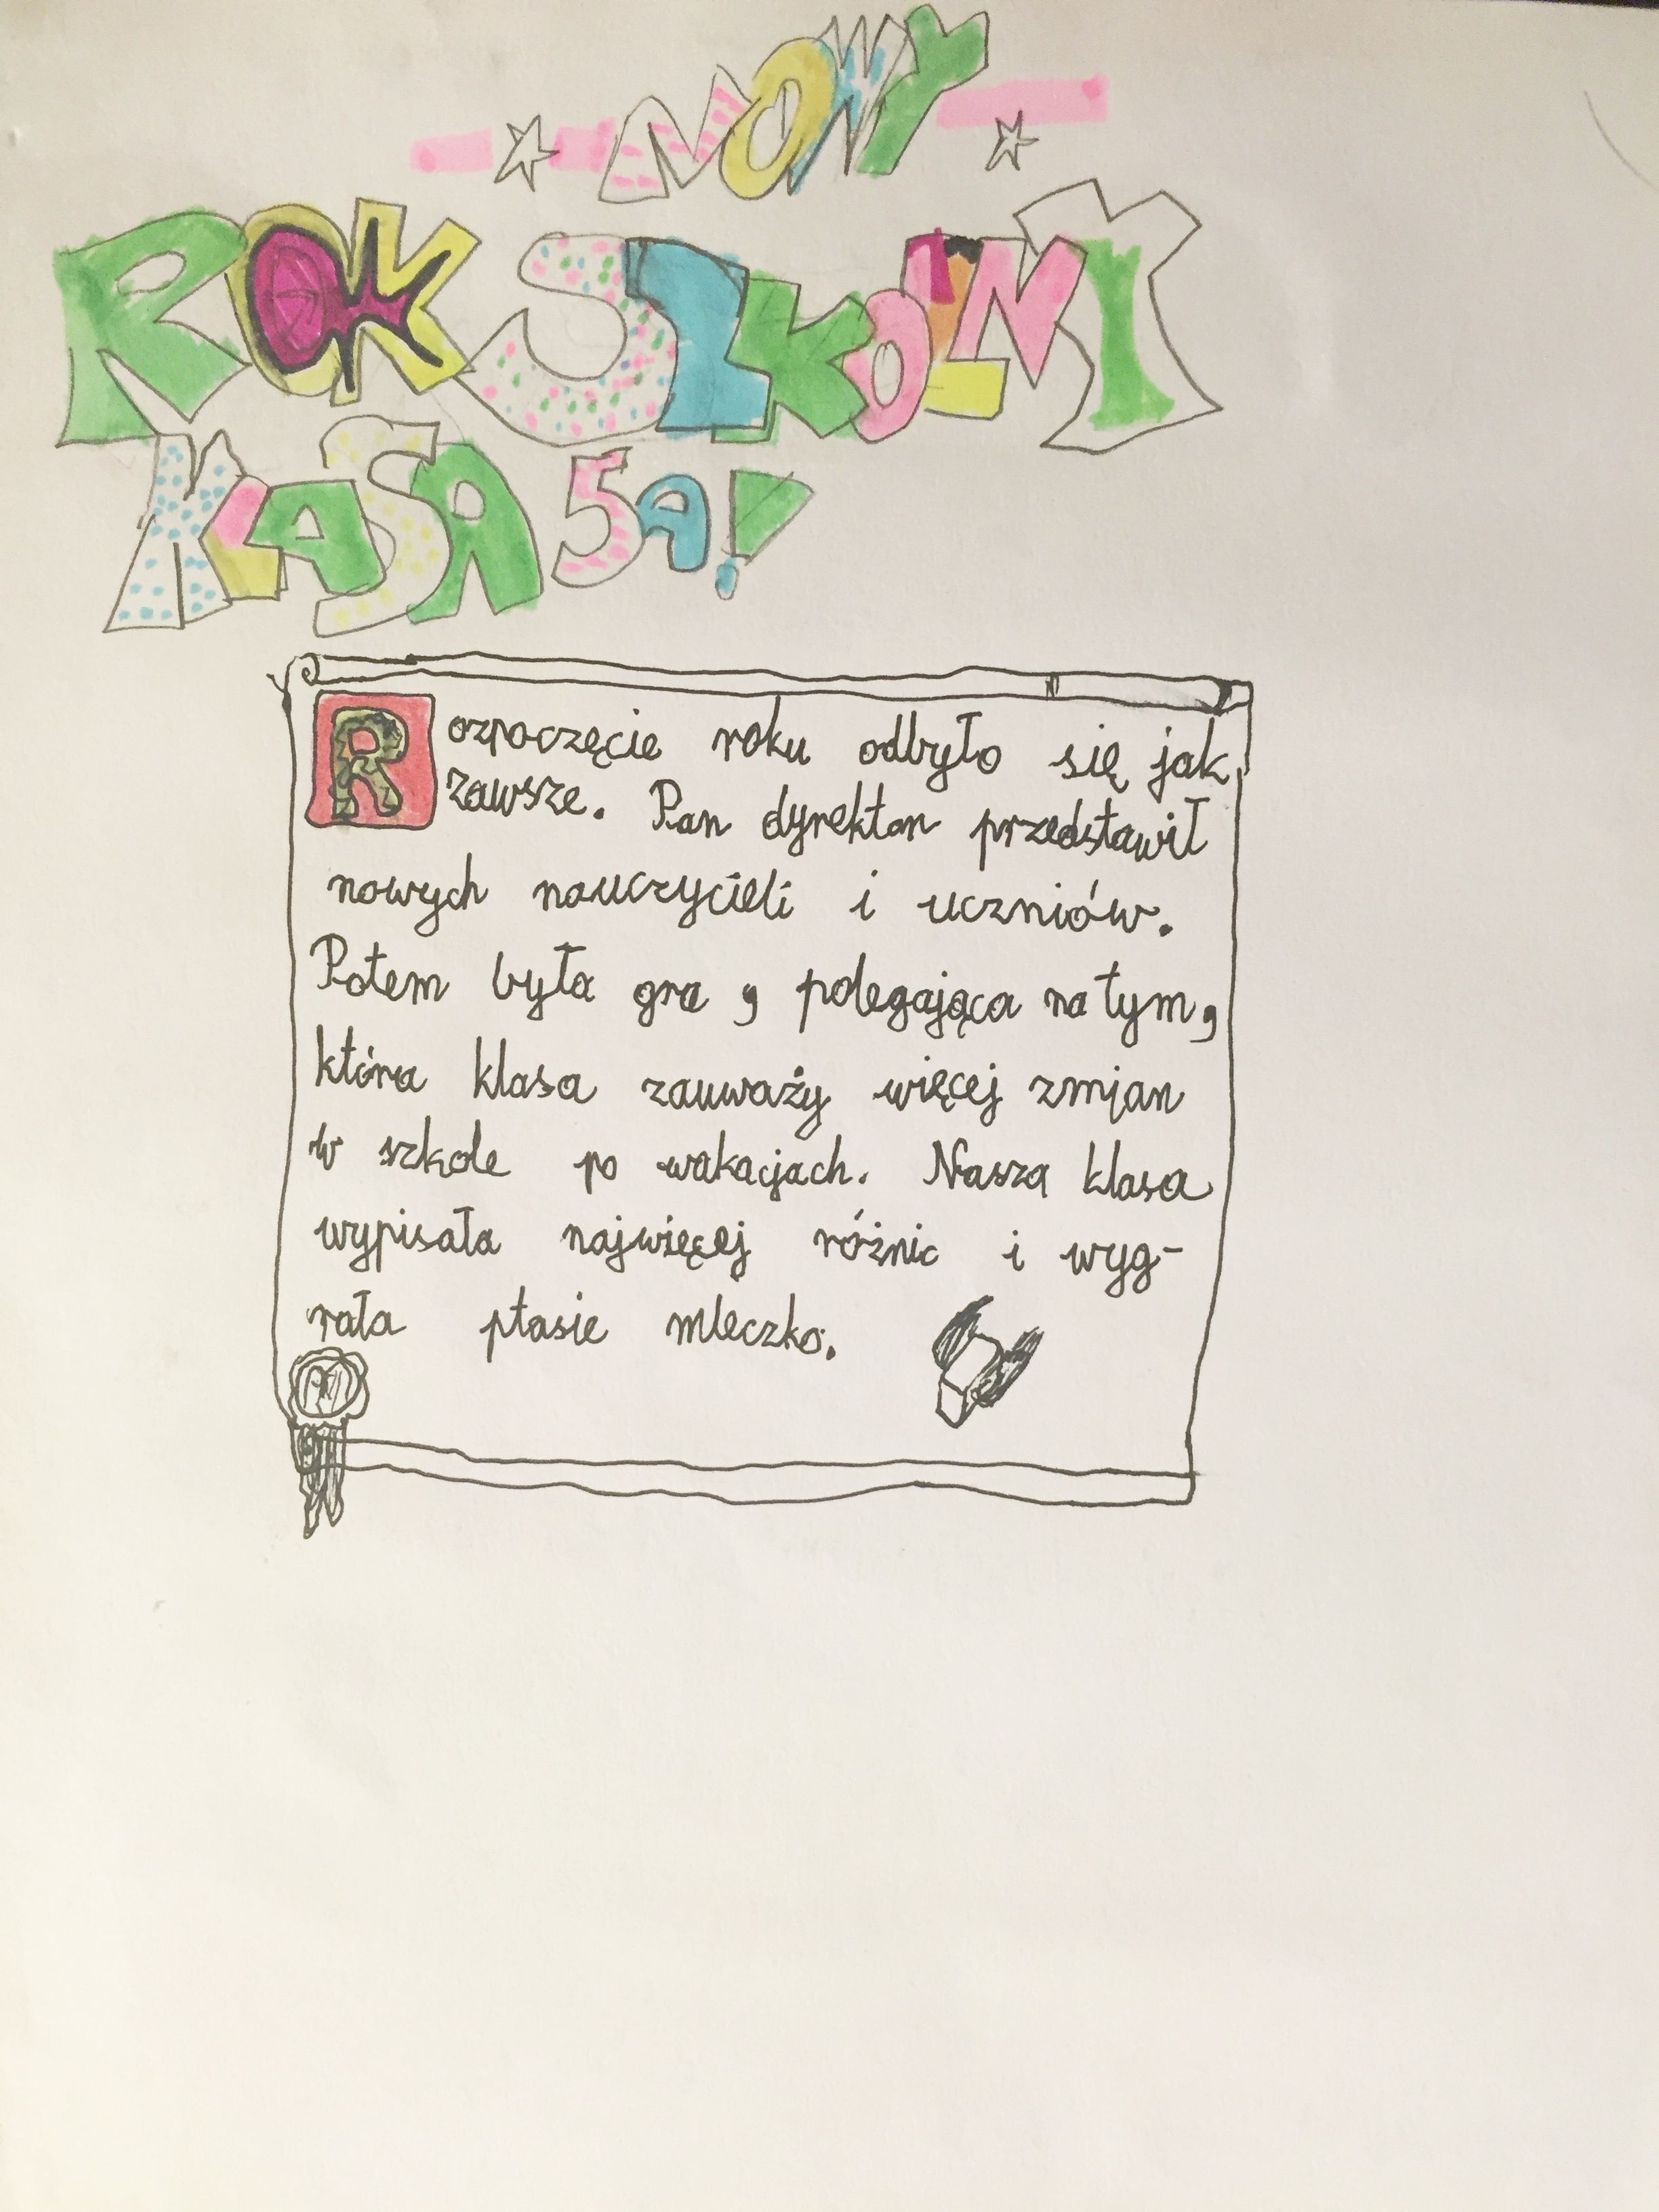 NOWY
ROK SZKOLNY
KLASA 5A!
Rozpoczęcie roku odbyło się jak
zawsze. Pan dyrektor przedstawił
nowych nauczycieli i uczniów.
Potem była gra, polegająca na tym,
która klasa zauważy więcej zmian
w szkole po wakacjach. Nasza klasa
wypisała najwięcej różnic i wyg-
rała ptasie mleczko.